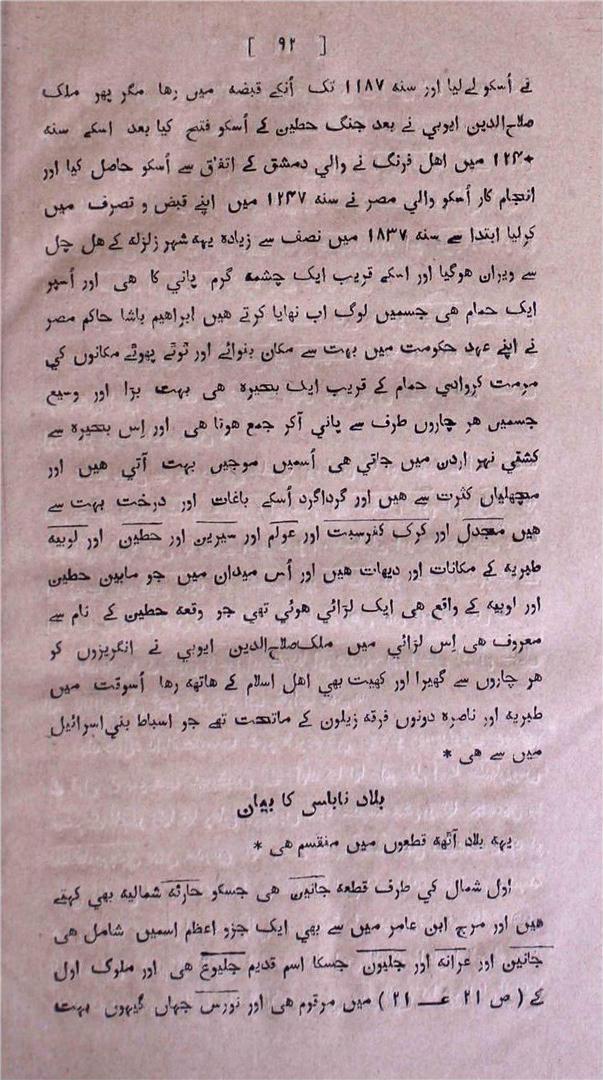 [ ٩٢ ]
نے اُسکو لے لیا اور سنہ ١١٨٧ تک اُنکے قبضہ میں رھا مگر پھر ملک
صلاح‌الدین ایوبي نے بعد جنگ حطین کے اُسکو فتح کیا بعد اسکے سنہ
١٢٤٠ میں اھل فرنگ نے والي دمشق کے اتفاق سے اُسکو حاصل کیا اور
انجام کار اُسکو والي مصر نے سنہ ١٢٤٧ میں اپنے قبض و تصرف میں
کرلیا ابتدا سے سنہ ١٨٣٧ میں نصف سے زیادہ یہہ شہر زلزلہ کے ھل چل
سے ویران ھوگیا اور اسکے قریب ایک چشمہ گرم پاني کا ھی اور اُسپر
ایک حمام ھی جسمیں لوگ اب نھایا کرتے ھیں ابراھیم باشا حاکم مصر
نے اپنے عہد حکومت میں بہت سے مکان بنوائے اور ٹوٹے پھوٹے مکانوں کي
مرمت کروائي حمام کے قریب ایک بحیرہ ھی بہت بڑا اور وسیع
جسمیں ھر چاروں طرف سے پاني آکر جمع ھوتا ھی اور اِس بحیرہ سے
کشتي نہر اردن میں جاتي ھی اُسمیں موجیں بہت آتي ھیں اور
مچھلیاں کثرت سے ھیں اور گرداگرد اُسکے باغات اور درخت بہت سے
ھیں مجدل اور کرک کفرسبت اور عولم اور سیرین اور حطین اور لوبیہ
طبریہ کے مکانات اور دیہات ھیں اور اُس میدان میں جو مابین حطین
اور لوبیہ کے واقع ھی ایک لڑائي ھوئي تھي جو وقعہ حطین کے نام سے
معروف ھی اِس لڑائي میں ملک‌صلاح‌الدین ایوبي نے انگریزوں کو
ھر چاروں سے گھیرا اور کھیت بھي اھل اسلام کے ھاتھہ رھا اُسوقت میں
طبریہ اور ناصرہ دونوں فرقہ زبلون کے ماتحت تھے جو اسباط بني‌اسرائیل
میں سے ھی *
بلاد نابلسی کا بیان
یہہ بلاد آٹھہ قطعوں میں منقسم ھی *
اول شمال کي طرف قطعہ جانین ھی جسکو حارثہ شمالیہ بھي کہتے
ھیں اور مرج ابن عامر میں سے بھي ایک جزو اعظم اسمیں شامل ھی
جانین اور عرانہ اور جلبون جسکا اسم قدیم جلبوع ھی اور ملوک اول
کے ( ص ٢١ عــ ٢١ ) میں مرقوم ھی اور نورس جہاں گیہوں بہت